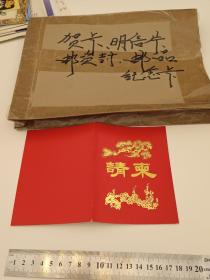 贺卡、明信片
邮资封、邮品
纪念卡
請柬
1 2 3 4 5 6 7 8 9 10 11 12 13 14 15 16 17 18 19 20